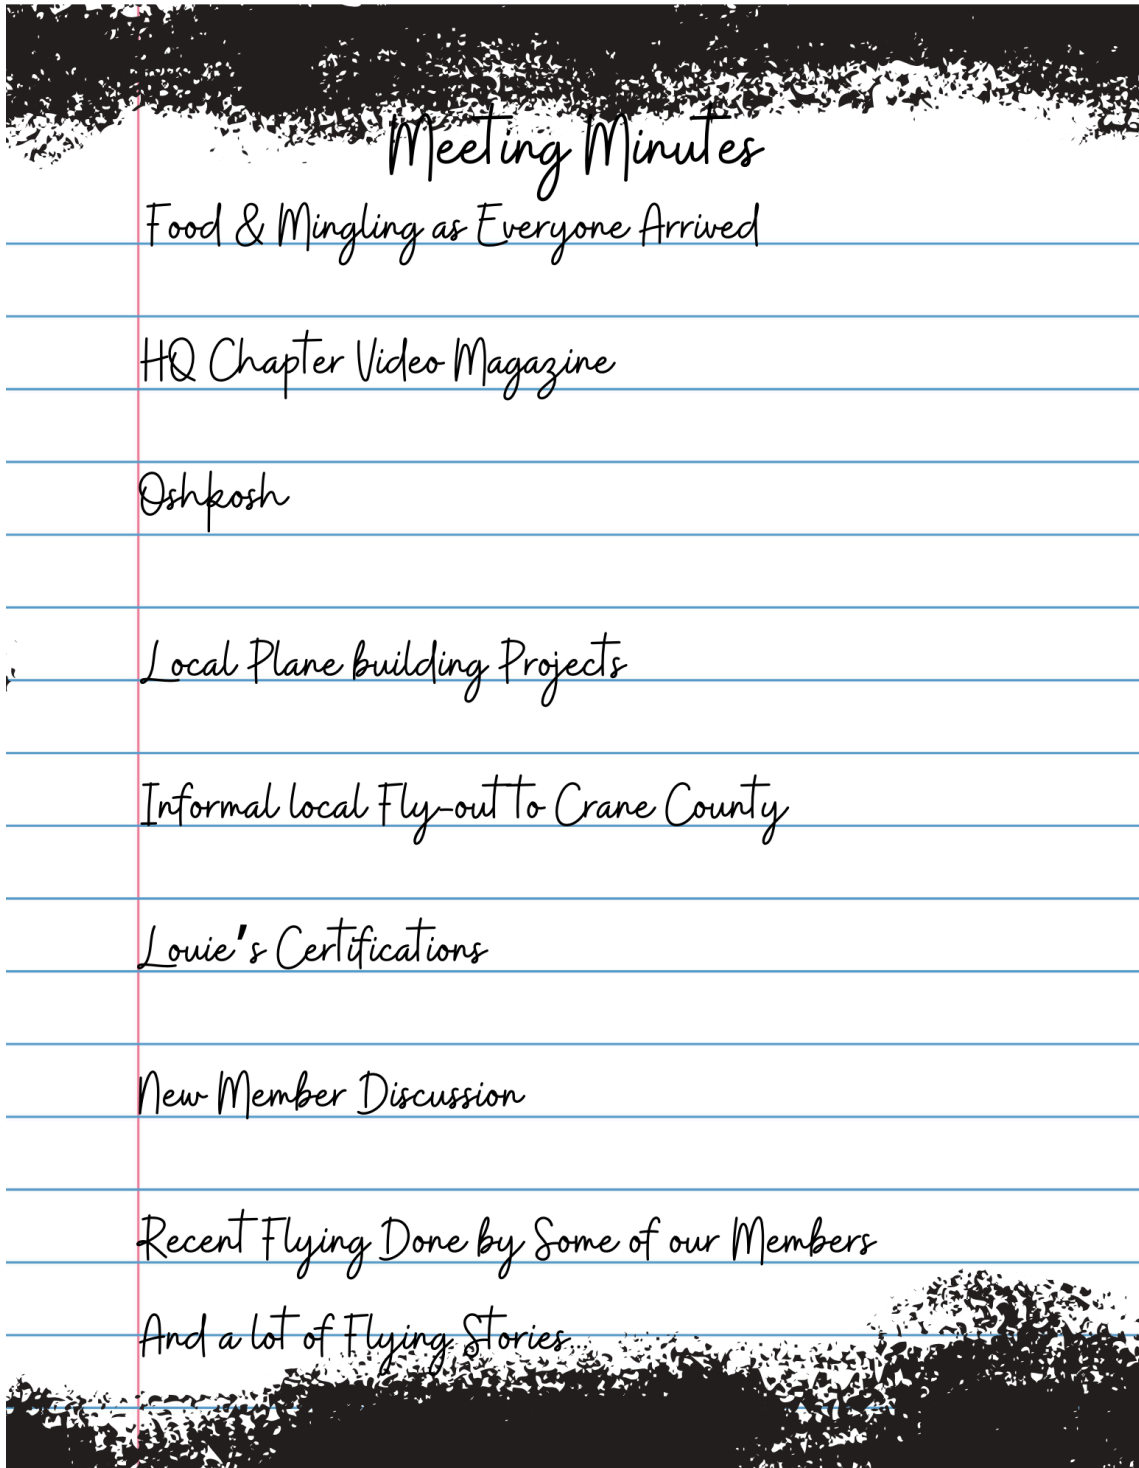 Meeting Minutes
Food & Mingling as Everyone Arrived
HQ Chapter Video Magazine
Oshkosh
Local Plane building Projects
Informal local Fly-out to Crane County
Louie's Certifications
New Member Discussion
Recent Flying Done by Some of our Members
And a lot of Flying Stories